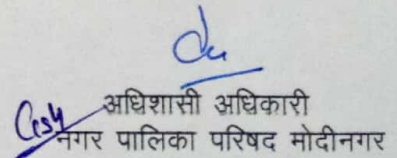 अधिशासी अधिकारी
नगर पालिका परिषद मोदीनगर